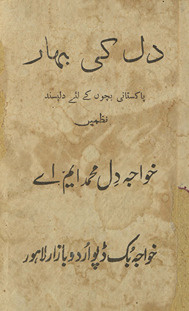 دل کی بہار
پاکستانی بچوں کے لئے دلپسند
نظمیں
خواجہ دل محمد ایم اے
خواجہ بک ڈپو اردو بازار لاہور